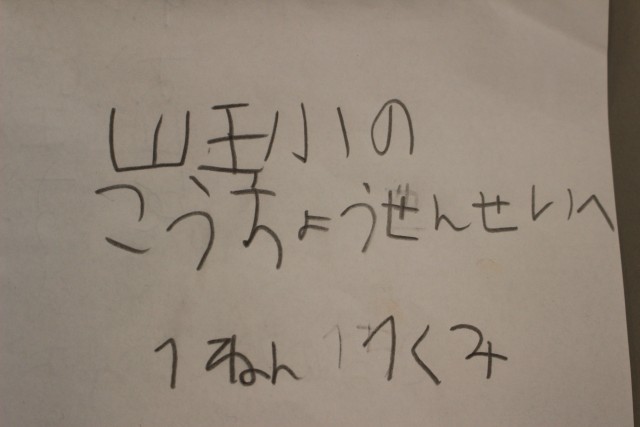 山王小の
こうちょうぜんせいへ
1ねん11くみ